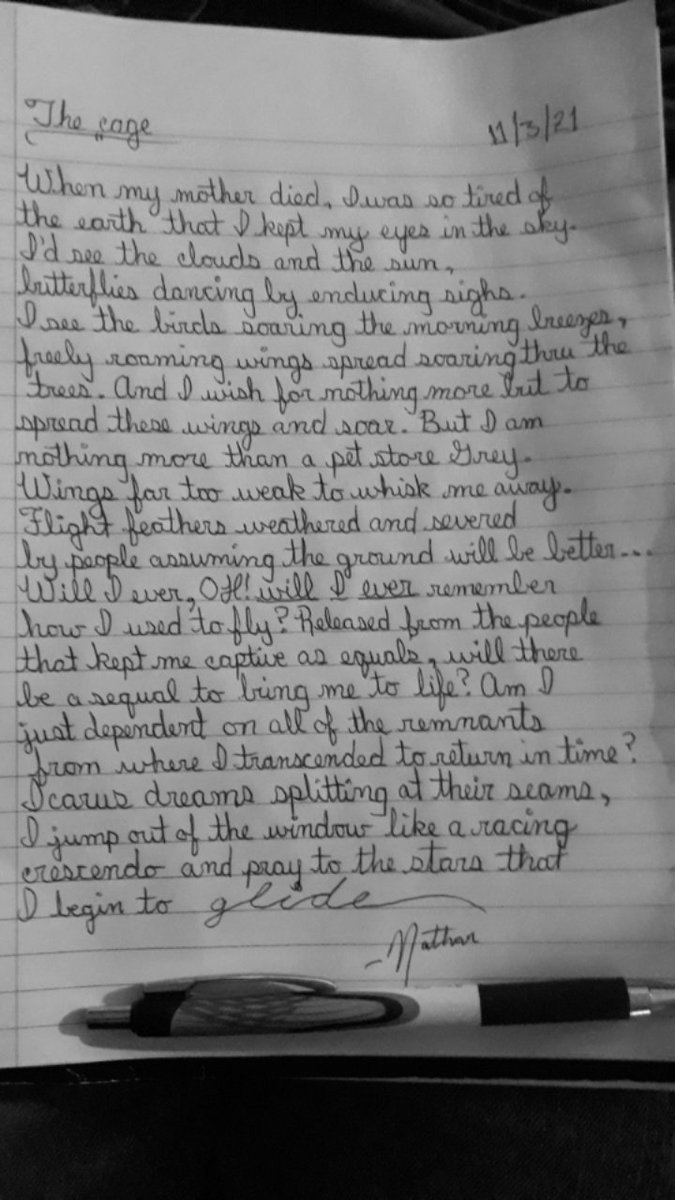 The cage
11/3/21
When my mother died, I was so tired of
the earth that I kept my eyes in the sky.
I'd see the clouds and the sun,
butterflies dancing by enducing sighs.
I see the birds soaring the morning breezes,
freely roaming wings spread soaring thru the
trees. And I wish for nothing more but to
spread these wings and soar. But I am
nothing more than a pet store Grey.
Wings far too weak to whisk me away.
Flight feathers weathered and severed
by people assuming the ground will be better...
Will I ever, OH! will I ever remember
how I used to fly? Released from the people
that kept me captive as equals, will there
be a sequal to bring me to life? Am I
just dependent on all of the remnants
from where I transcended to return in time?
Icarus dreams splitting at their seams,
I jump out of the window like a racing
crescendo and pray to the stars that
I begin to glide
-Nathan